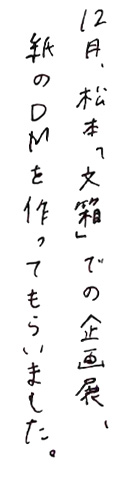 12月、松本「文箱」での企画展、
紙のDMを作ってもらいました。